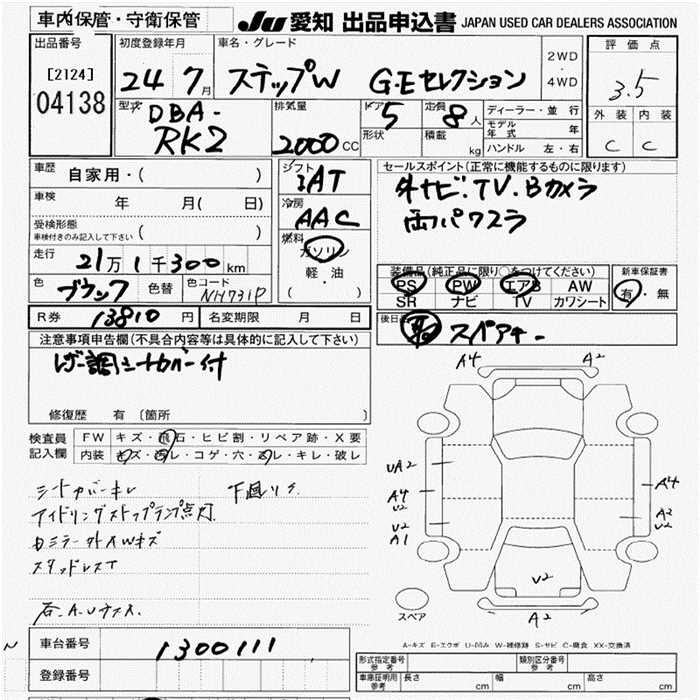 車内保管・守衛保管
JU 愛知 出品申込書 JAPAN USED CAR DEALERS ASSOCIATION
出品番号
[2124]
04138
初度登録年月
24 7月
車名・グレード
ステップW G・Eセレクション
2WD
・
4WD
評価点
3.5
外装 内装
C C
型式
DBA-
RK2
排気量
2000 CC
ドア
5
定員
8人
形状
積載
kg
ディーラー・並行
モデル年式 年
ハンドル 左・右
車歴
自家用・( )
車検
年 月( 日)
受検形態
車検付きのみ記入して下さい
( )
走行
21万1千300km
色
ブラック
色替
色コード
NH731P
シフト
IAT
冷房
AAC
燃料
ガソリン
軽・油
( ・ )
セールスポイント(正常に機能するものに限ります)
外ナビ.TV.Bカメラ
両パワスラ
装備品(純正品に限り○をつけてください)
PS PW エアB AW
SR ナビ TV カワシート
新車保証書
有・無
R券 13810 円
名変期限 月 日
後日品
スペアキー
注意事項申告欄(不具合内容等は具体的に記入して下さい)
レザー調シートカバー付
修復歴 有 〔箇所
検査員
記入欄
FW キズ・飛石・ヒビ割・リペア跡・X要
内装 キズ・汚レ・コゲ・穴・スレ・キレ・破レ
シートカバーキレ
下廻リサ
アイドリングストップランプ点灯
スタッドレスT
A4 A2
UA2
A4
U2
U2
A1
A4
A2
U2
U2
A2
スペア
A-キズ E-エクボ U-凹み W-補修跡 S-サビ C-腐食 XX-交換済
車台番号
1300111
登録番号
形式指定番号
参考
類別区分番号
参考
車庫証明用
参考
長さ cm 幅 cm 高さ cm